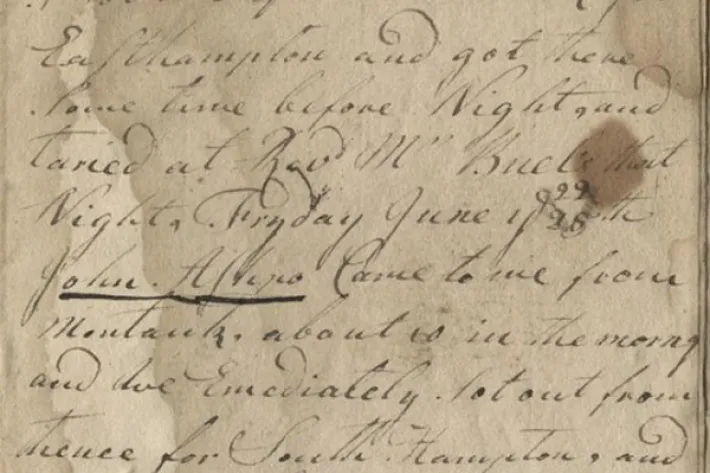 Easthampton and got there
Some time before Night, and
taried at Revd Mr Buel's that
Night, Fryday June ye th
John Ashpo Came to me from
Montauk, about 10 in the morng
and we Emediately Sot out from
thence for South Hampton, and